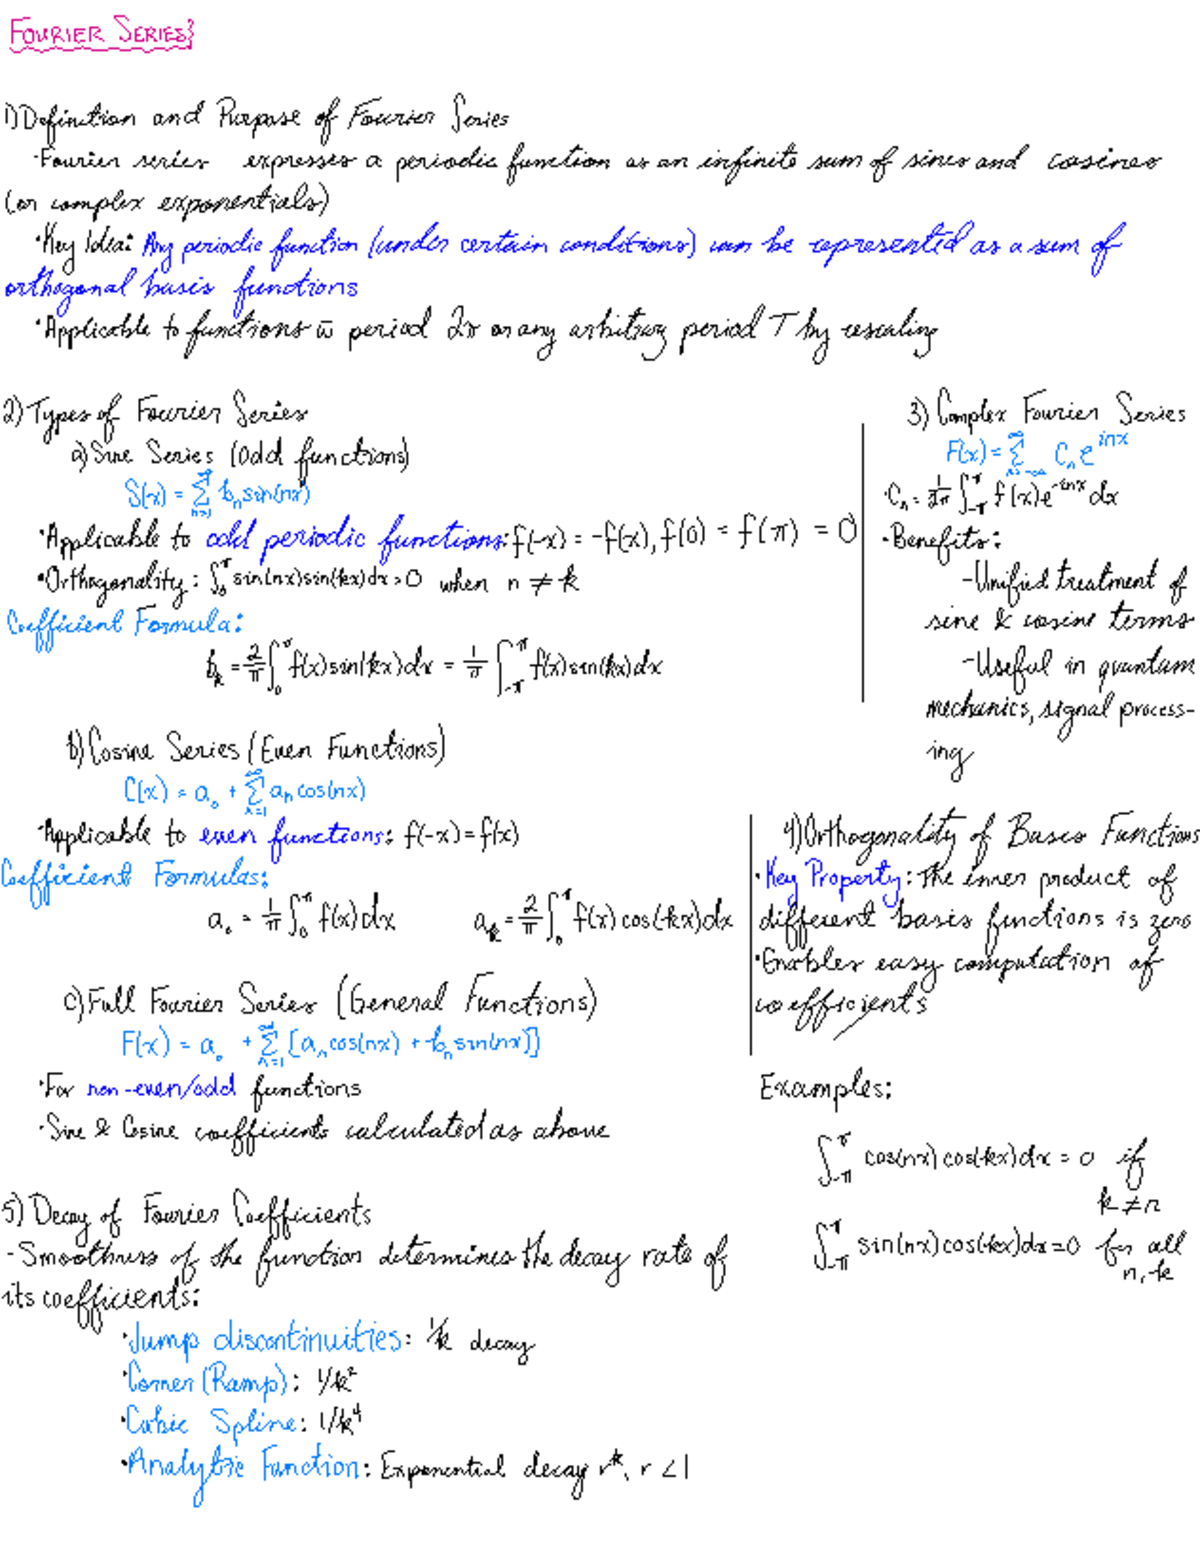 FOURIER SERIES}
1) Definition and Purpose of Fourier Series
·Fourier series expresses a periodic function as an infinite sum of sines and cosines
(or complex exponentials)
·Key Idea: Any periodic function (under certain conditions) can be represented as a sum of
orthogonal basis functions
·Applicable to functions w̄ period 2π or any arbitrary period T by rescaling
2) Types of Fourier Series
a) Sine Series (Odd functions)
S(x) = ∑_{n=1}^{∞} b_n sin(nx)
·Applicable to odd periodic functions: f(-x) = -f(x), f(0) = f(π) = 0
·Orthogonality: ∫_0^π sin(nx)sin(kx)dx = 0 when n ≠ k
Coefficient Formula:
b_k = 2/π ∫_0^π f(x)sin(kx)dx = 1/π ∫_{-π}^π f(x)sin(kx)dx
b) Cosine Series (Even Functions)
C(x) = a_0 + ∑_{n=1}^{∞} a_n cos(nx)
·Applicable to even functions: f(-x) = f(x)
Coefficient Formulas:
a_0 = 1/π ∫_0^π f(x)dx a_k = 2/π ∫_0^π f(x)cos(kx)dx
c) Full Fourier Series (General Functions)
F(x) = a_0 + ∑_{n=1}^{∞} [a_n cos(nx) + b_n sin(nx)]
·For non-even/odd functions
·Sine & Cosine coefficients calculated as above
3) Complex Fourier Series
F(x) = ∑_{n=-∞}^{∞} C_n e^{inx}
·C_n = 1/2π ∫_{-π}^π f(x)e^{-inx}dx
·Benefits:
-Unified treatment of
sine & cosine terms
-Useful in quantum
mechanics, signal process-
ing
4) Orthogonality of Basis Functions
·Key Property: The inner product of
different basis functions is zero
·Enables easy computation of
coefficients
Examples:
∫_{-π}^π cos(nx)cos(kx)dx = 0 if
k ≠ n
∫_{-π}^π sin(nx)cos(kx)dx = 0 for all
n, k
5) Decay of Fourier Coefficients
-Smoothness of the function determines the decay rate of
its coefficients:
·Jump discontinuities: 1/k decay
·Corner (Ramp): 1/k²
·Cubic Spline: 1/k⁴
·Analytic Function: Exponential decay r^k, r < 1